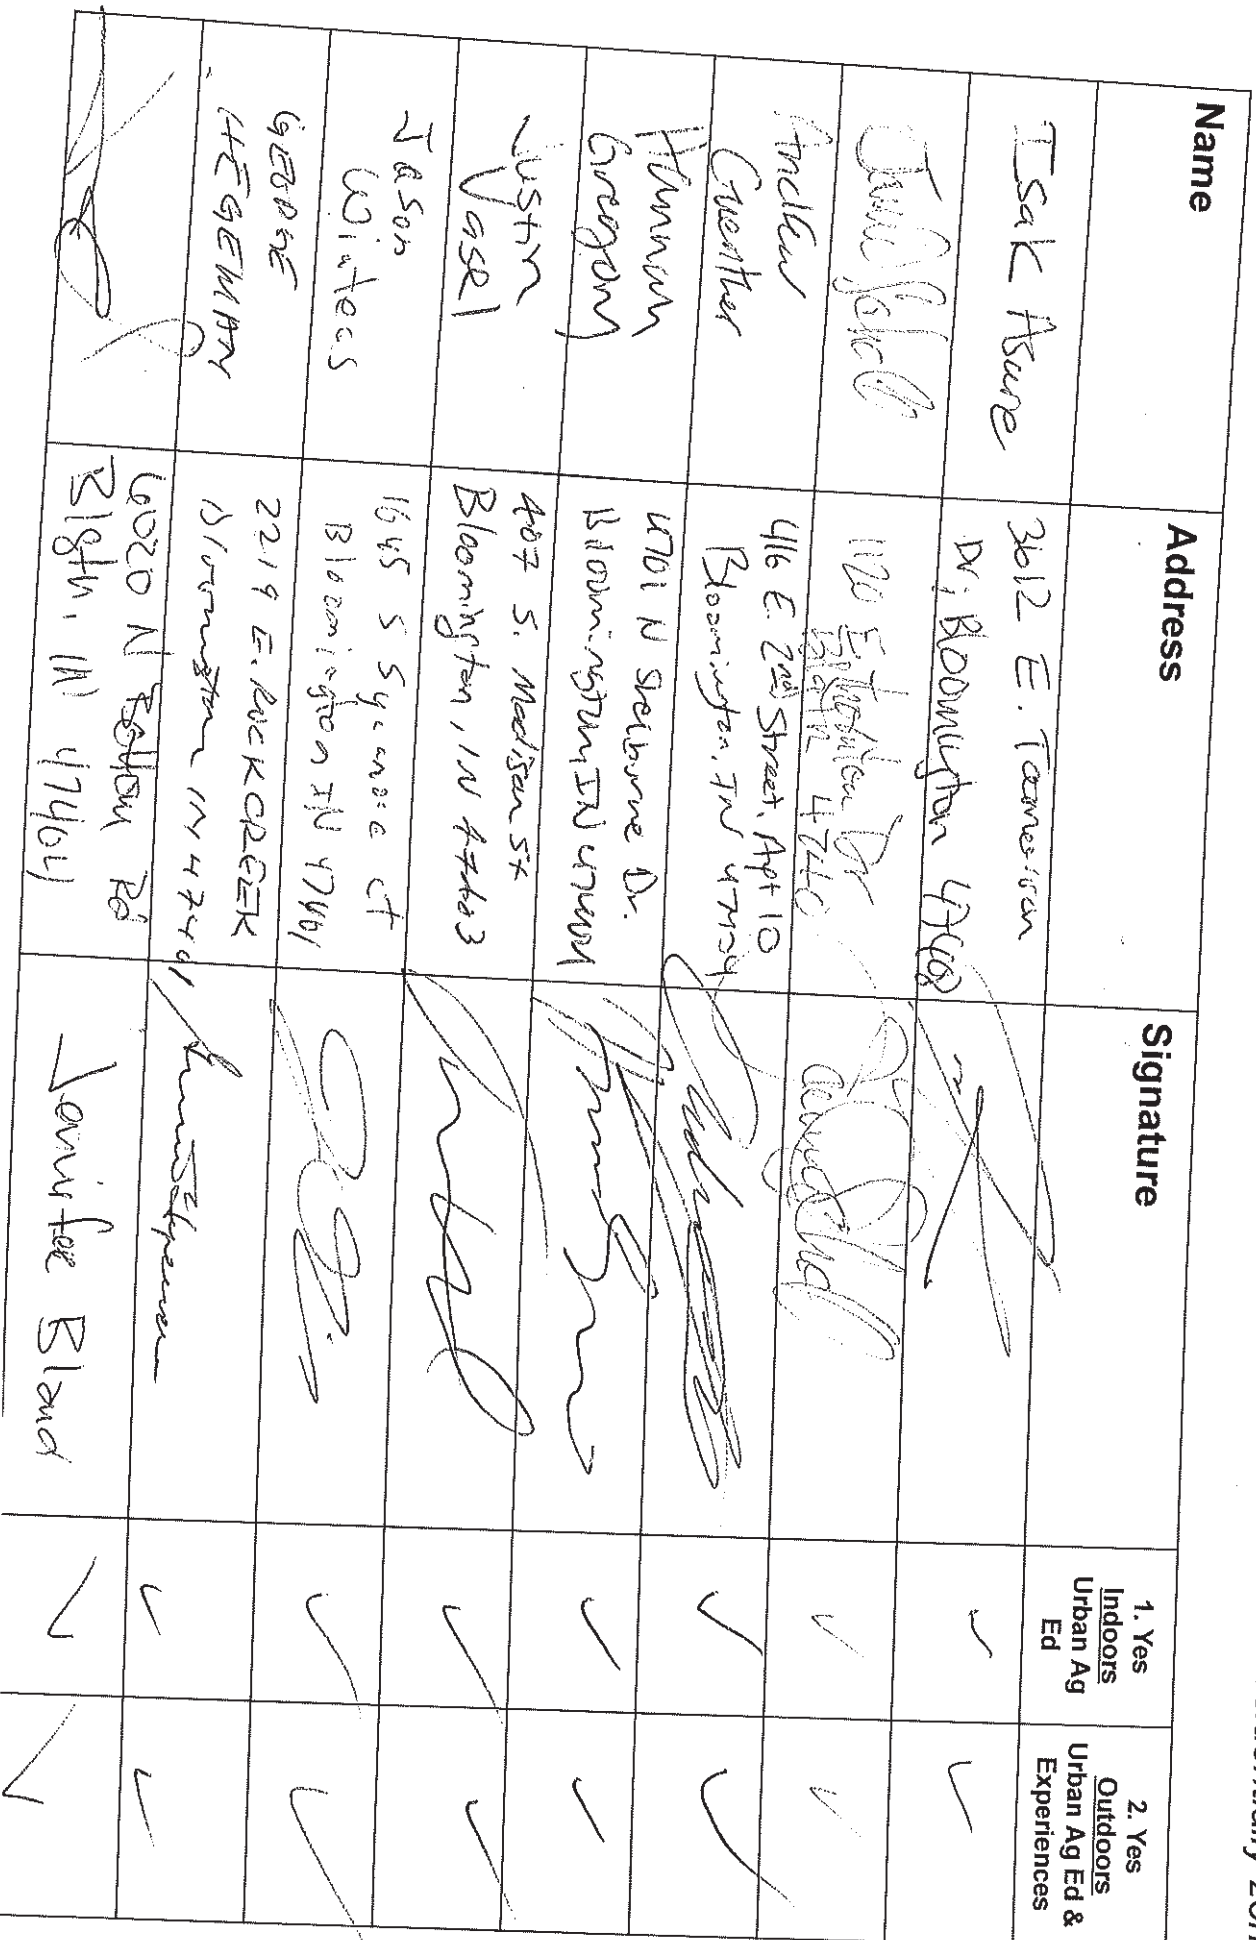 Name
Address
Signature
1. Yes
Indoors
Urban Ag
Ed
2. Yes
Outdoors
Urban Ag Ed &
Experiences
Isak Asure
3612 E.
Dr, Bloomington
1120 E
Andrew
Guenther
416 E. 2nd Street, Apt 10
Bloomington, IN
Hannah
Gregory
4701 N Dr.
Bloomington IN
Justin
Vasel
407 S. Madison St
Bloomington, IN 47403
Jason
Winters
1645 S Sycamore ct
Bloomington IN 47401
GEORGE
HEGEMAN
2219 E. ROCK CREEK
Bloomington IN, 47401
6020 N Rd
Blgtn, IN
Jennifer Bland